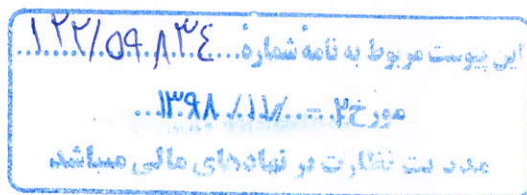 این پیوست مربوط به نامهٔ شمارهٔ...۱۲۲/۵۹۸۳۴
مورخ ۲.-...../۱۱/ ۱۳۹۸...
مدیریت نظارت بر نهادهای مالی میباشد